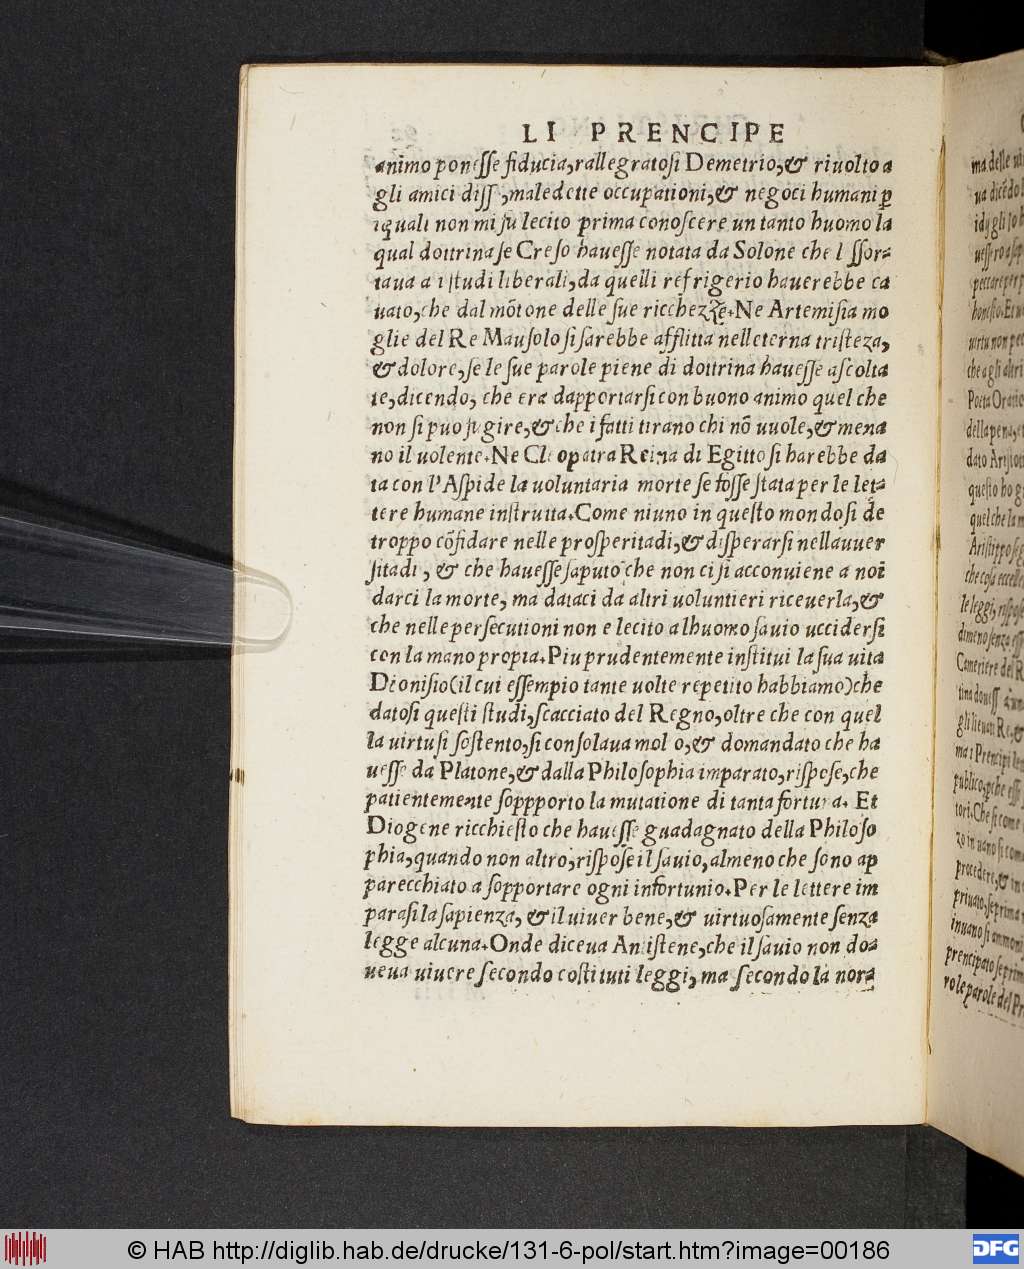 LI PRENCIPE
animo ponesse fiducia, rallegratosi Demetrio, & riuolto a
gli amici diss , maledette occupationi, & negoci humani ꝑ
iquali non mi fu lecito prima conoscere un tanto huomo la
qual dottrina se Creso hauesse notata da Solone che l ssor⸗
taua a i studi liberali, da quelli refrigerio hauerebbe ca
uato, che dal mõtone delle sue ricchezze. Ne Artemisia mo
glie del Re Mausolo si sarebbe afflitta nelleterna tristeza,
& dolore, se le sue parole piene di dottrina hauesse ascolta
te, dicendo, che era dapportarsi con buono animo quel che
non si puo fugire, & che i fatti tirano chi nõ uuole, & mena
no il uolente. Ne Cleopatra Reina di Egitto si harebbe da
ta con l'Aspide la uoluntaria morte se fosse stata per le let⸗
tere humane instrutta. Come niuno in questo mondo si de
troppo cõfidare nelle prosperitadi, & disperarsi nellauuer
sitadi , & che hauesse saputo che non ci si acconuiene a noi
darci la morte, ma dataci da altri uoluntieri riceuerla, &
che nelle persecutioni non e lecito alhuomo sauio uccidersi
con la mano propia. Piu prudentemente institui la sua uita
Dionisio (il cui essempio tante uolte repetito habbiamo) che
datosi questi studi, scacciato del Regno, oltre che con quel
la uirtu si sostento, si consolaua mol o, & domandato che ha
uesse da Platone, & dalla Philosophia imparato, rispose, che
patientemente soppporto la mutatione di tanta fortuna. Et
Diogene ricchiesto che hauesse guadagnato della Philoso
phia, quando non altro, rispose il sauio, almeno che sono ap
parecchiato a sopportare ogni infortunio. Per le lettere im
parasi la sapienza, & il uiuer bene, & uirtuosamente senza
legge alcuna. Onde diceua Antistene, che il sauio non do⸗
ueua uiuere secondo costituti leggi, ma secondo la nor⸗
ma delle
ua dicẽdo
che a gli altri
Poeta Oratio
della pena, e
dato Aristot
questo ho g
quel che la m
Aristippo se g
che cosa eccelle
le leggi, rispose
dimeno senza esse
Cameriere del R
gli lieuati Re, &
ma i Principi le
publico, pche esse
tori. Che si come
zo in uano si com
procedere, & in
priuato, se prima
inuano si ammoni
prencipato se prim
ro le parole del Pr
© HAB http://diglib.hab.de/drucke/131-6-pol/start.htm?image=00186
DFG